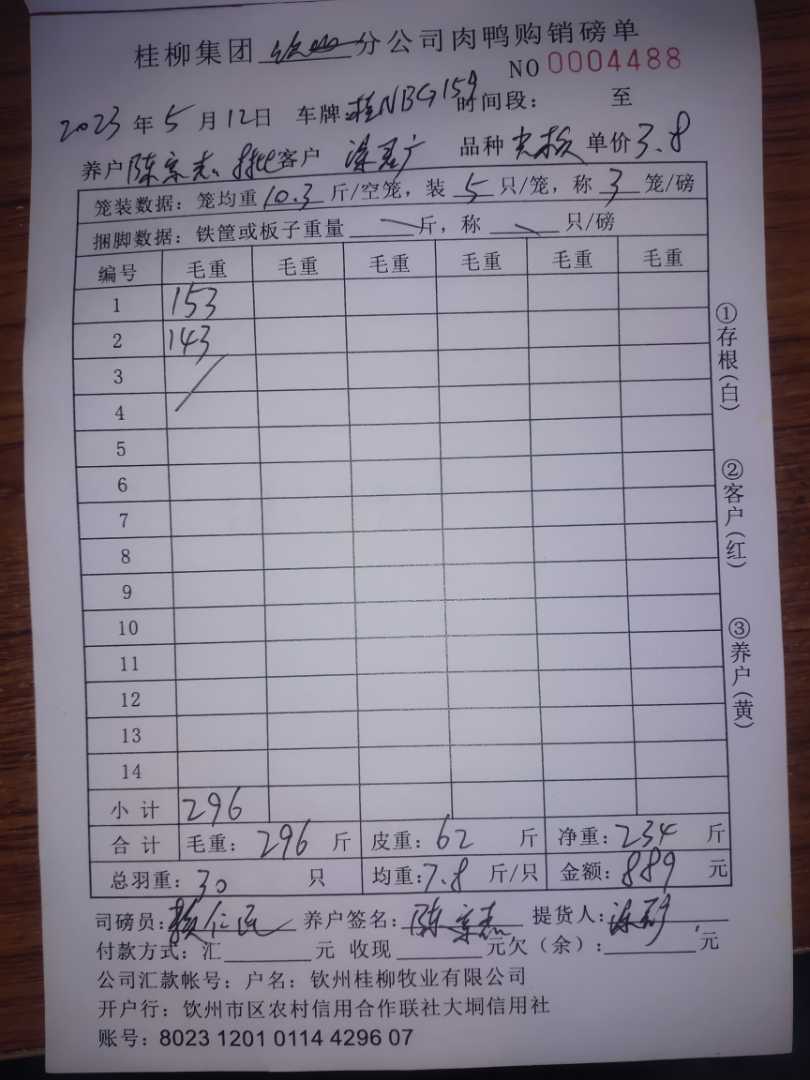 桂柳集团 钦州 分公司肉鸭购销磅单
NO 0004488
2023年5月12日 车牌:桂NBG159 时间段: 至
养户 陈家志 客户 品种 单价 3.8
笼装数据:笼均重 10.3 斤/空笼,装 5 只/笼,称 3 笼/磅
捆脚数据:铁筐或板子重量 斤,称 只/磅
编号 毛重 毛重 毛重 毛重 毛重 毛重
1 153
2 143
3
4
5
6
7
8
9
10
11
12
13
14
小计 296
合计 毛重: 296 斤 皮重: 62 斤 净重: 234 斤
总羽重: 30 只 均重: 7.8 斤/只 金额: 889 元
司磅员: 养户签名: 陈家志 提货人:
付款方式:汇 元 收现 元欠(余): 元
公司汇款帐号:户名:钦州桂柳牧业有限公司
开户行:钦州市区农村信用合作联社大垌信用社
账号:8023 1201 0114 4296 07
①存根(白)
②客户(红)
③养户(黄)